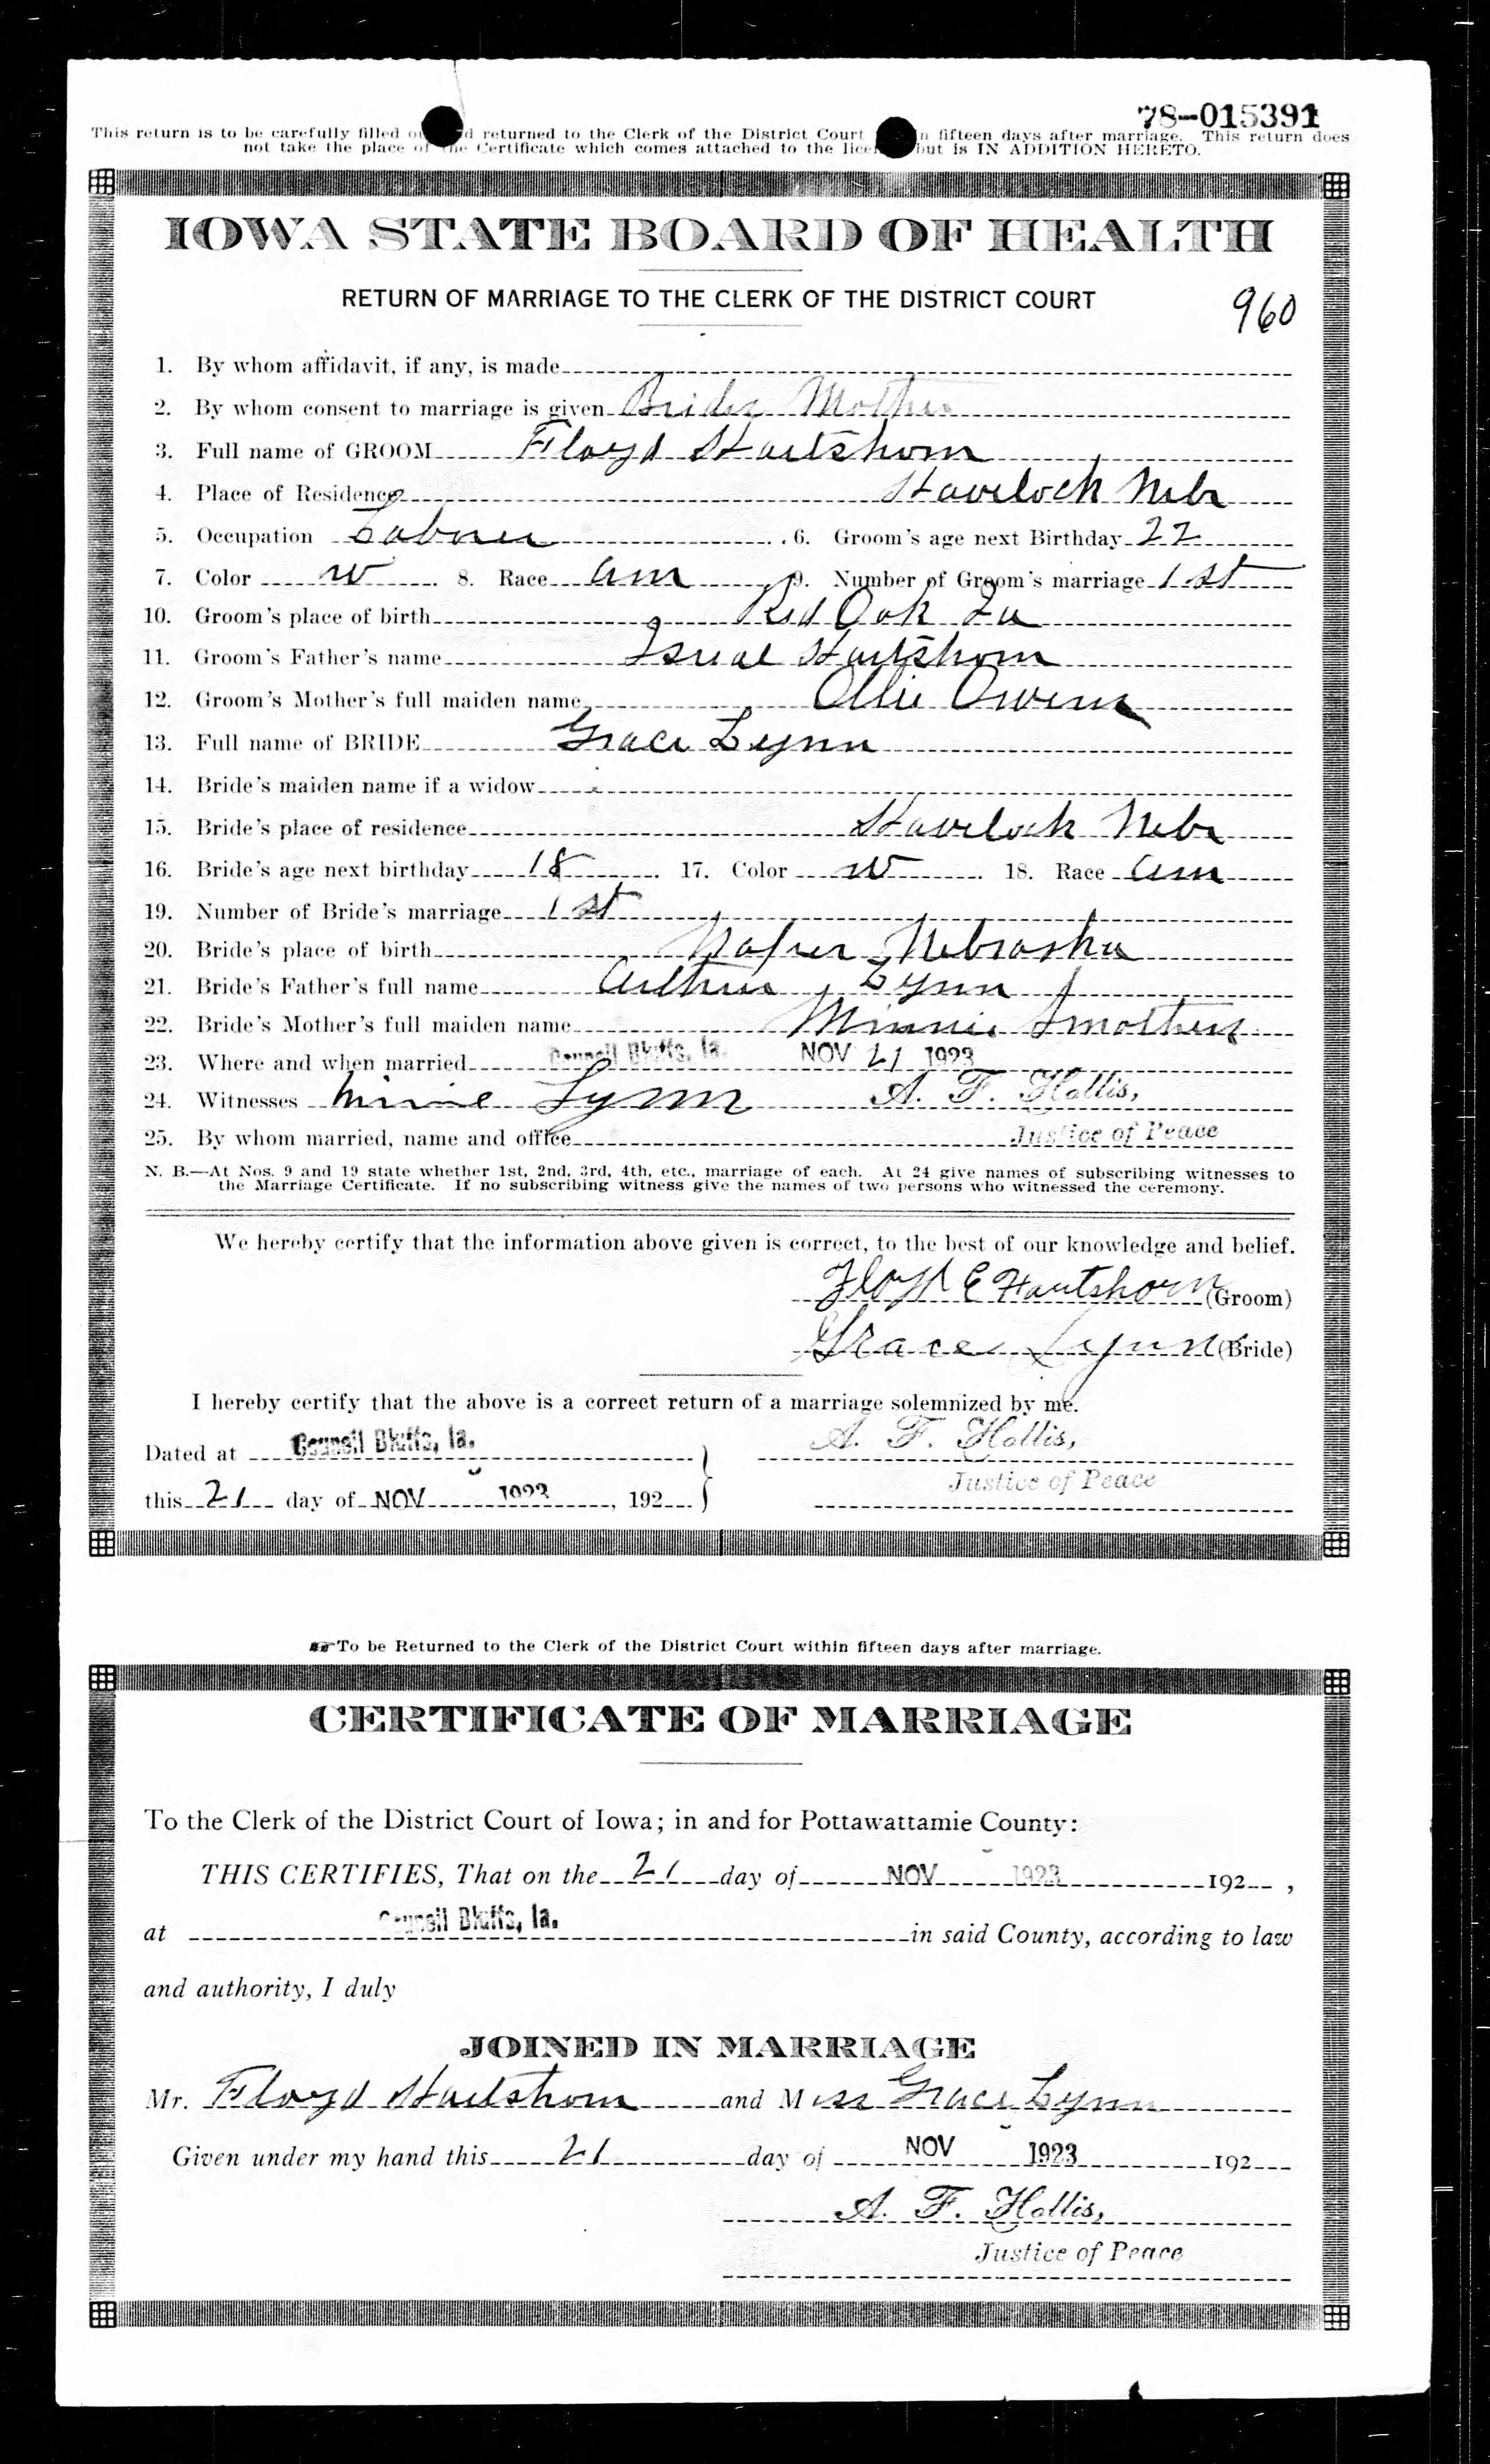 78-015391
This return is to be carefully filled d returned to the Clerk of the District Court n fifteen days after marriage. This return does
not take the place of the Certificate which comes attached to the but is IN ADDITION HERETO.
IOWA STATE BOARD OF HEALTH
RETURN OF MARRIAGE TO THE CLERK OF THE DISTRICT COURT
960
1. By whom affidavit, if any, is made
2. By whom consent to marriage is given Brides Mother
3. Full name of GROOM Floyd Hartshorn
4. Place of Residence Havelock Nebr
5. Occupation Laborer 6. Groom's age next Birthday 22
7. Color W 8. Race Am 9. Number of Groom's marriage 1st
10. Groom's place of birth Red Oak Ia
11. Groom's Father's name Hartshorn
12. Groom's Mother's full maiden name Ollie Owens
13. Full name of BRIDE Grace Lynn
14. Bride's maiden name if a widow
15. Bride's place of residence Havelock Nebr
16. Bride's age next birthday 18 17. Color W 18. Race Am
19. Number of Bride's marriage 1st
20. Bride's place of birth Nebraska
21. Bride's Father's full name Arthur Lynn
22. Bride's Mother's full maiden name Minnie Smothers
23. Where and when married Council Bluffs, Ia. NOV 21 1923
24. Witnesses Lynn A. F. Hollis,
25. By whom married, name and office Justice of Peace
N. B.—At Nos. 9 and 19 state whether 1st, 2nd, 3rd, 4th, etc., marriage of each. At 24 give names of subscribing witnesses to
the Marriage Certificate. If no subscribing witness give the names of two persons who witnessed the ceremony.
We hereby certify that the information above given is correct, to the best of our knowledge and belief.
Floyd E Hartshorn (Groom)
Grace Lynn (Bride)
I hereby certify that the above is a correct return of a marriage solemnized by me.
Dated at Council Bluffs, Ia. A. F. Hollis,
Justice of Peace
this 21 day of NOV 1923, 192
To be Returned to the Clerk of the District Court within fifteen days after marriage.
CERTIFICATE OF MARRIAGE
To the Clerk of the District Court of Iowa; in and for Pottawattamie County:
THIS CERTIFIES, That on the 21 day of NOV 1923 192 ,
at Council Bluffs, Ia. in said County, according to law
and authority, I duly
JOINED IN MARRIAGE
Mr. Floyd Hartshorn and Miss Grace Lynn
Given under my hand this 21 day of NOV 1923 192
A. F. Hollis,
Justice of Peace